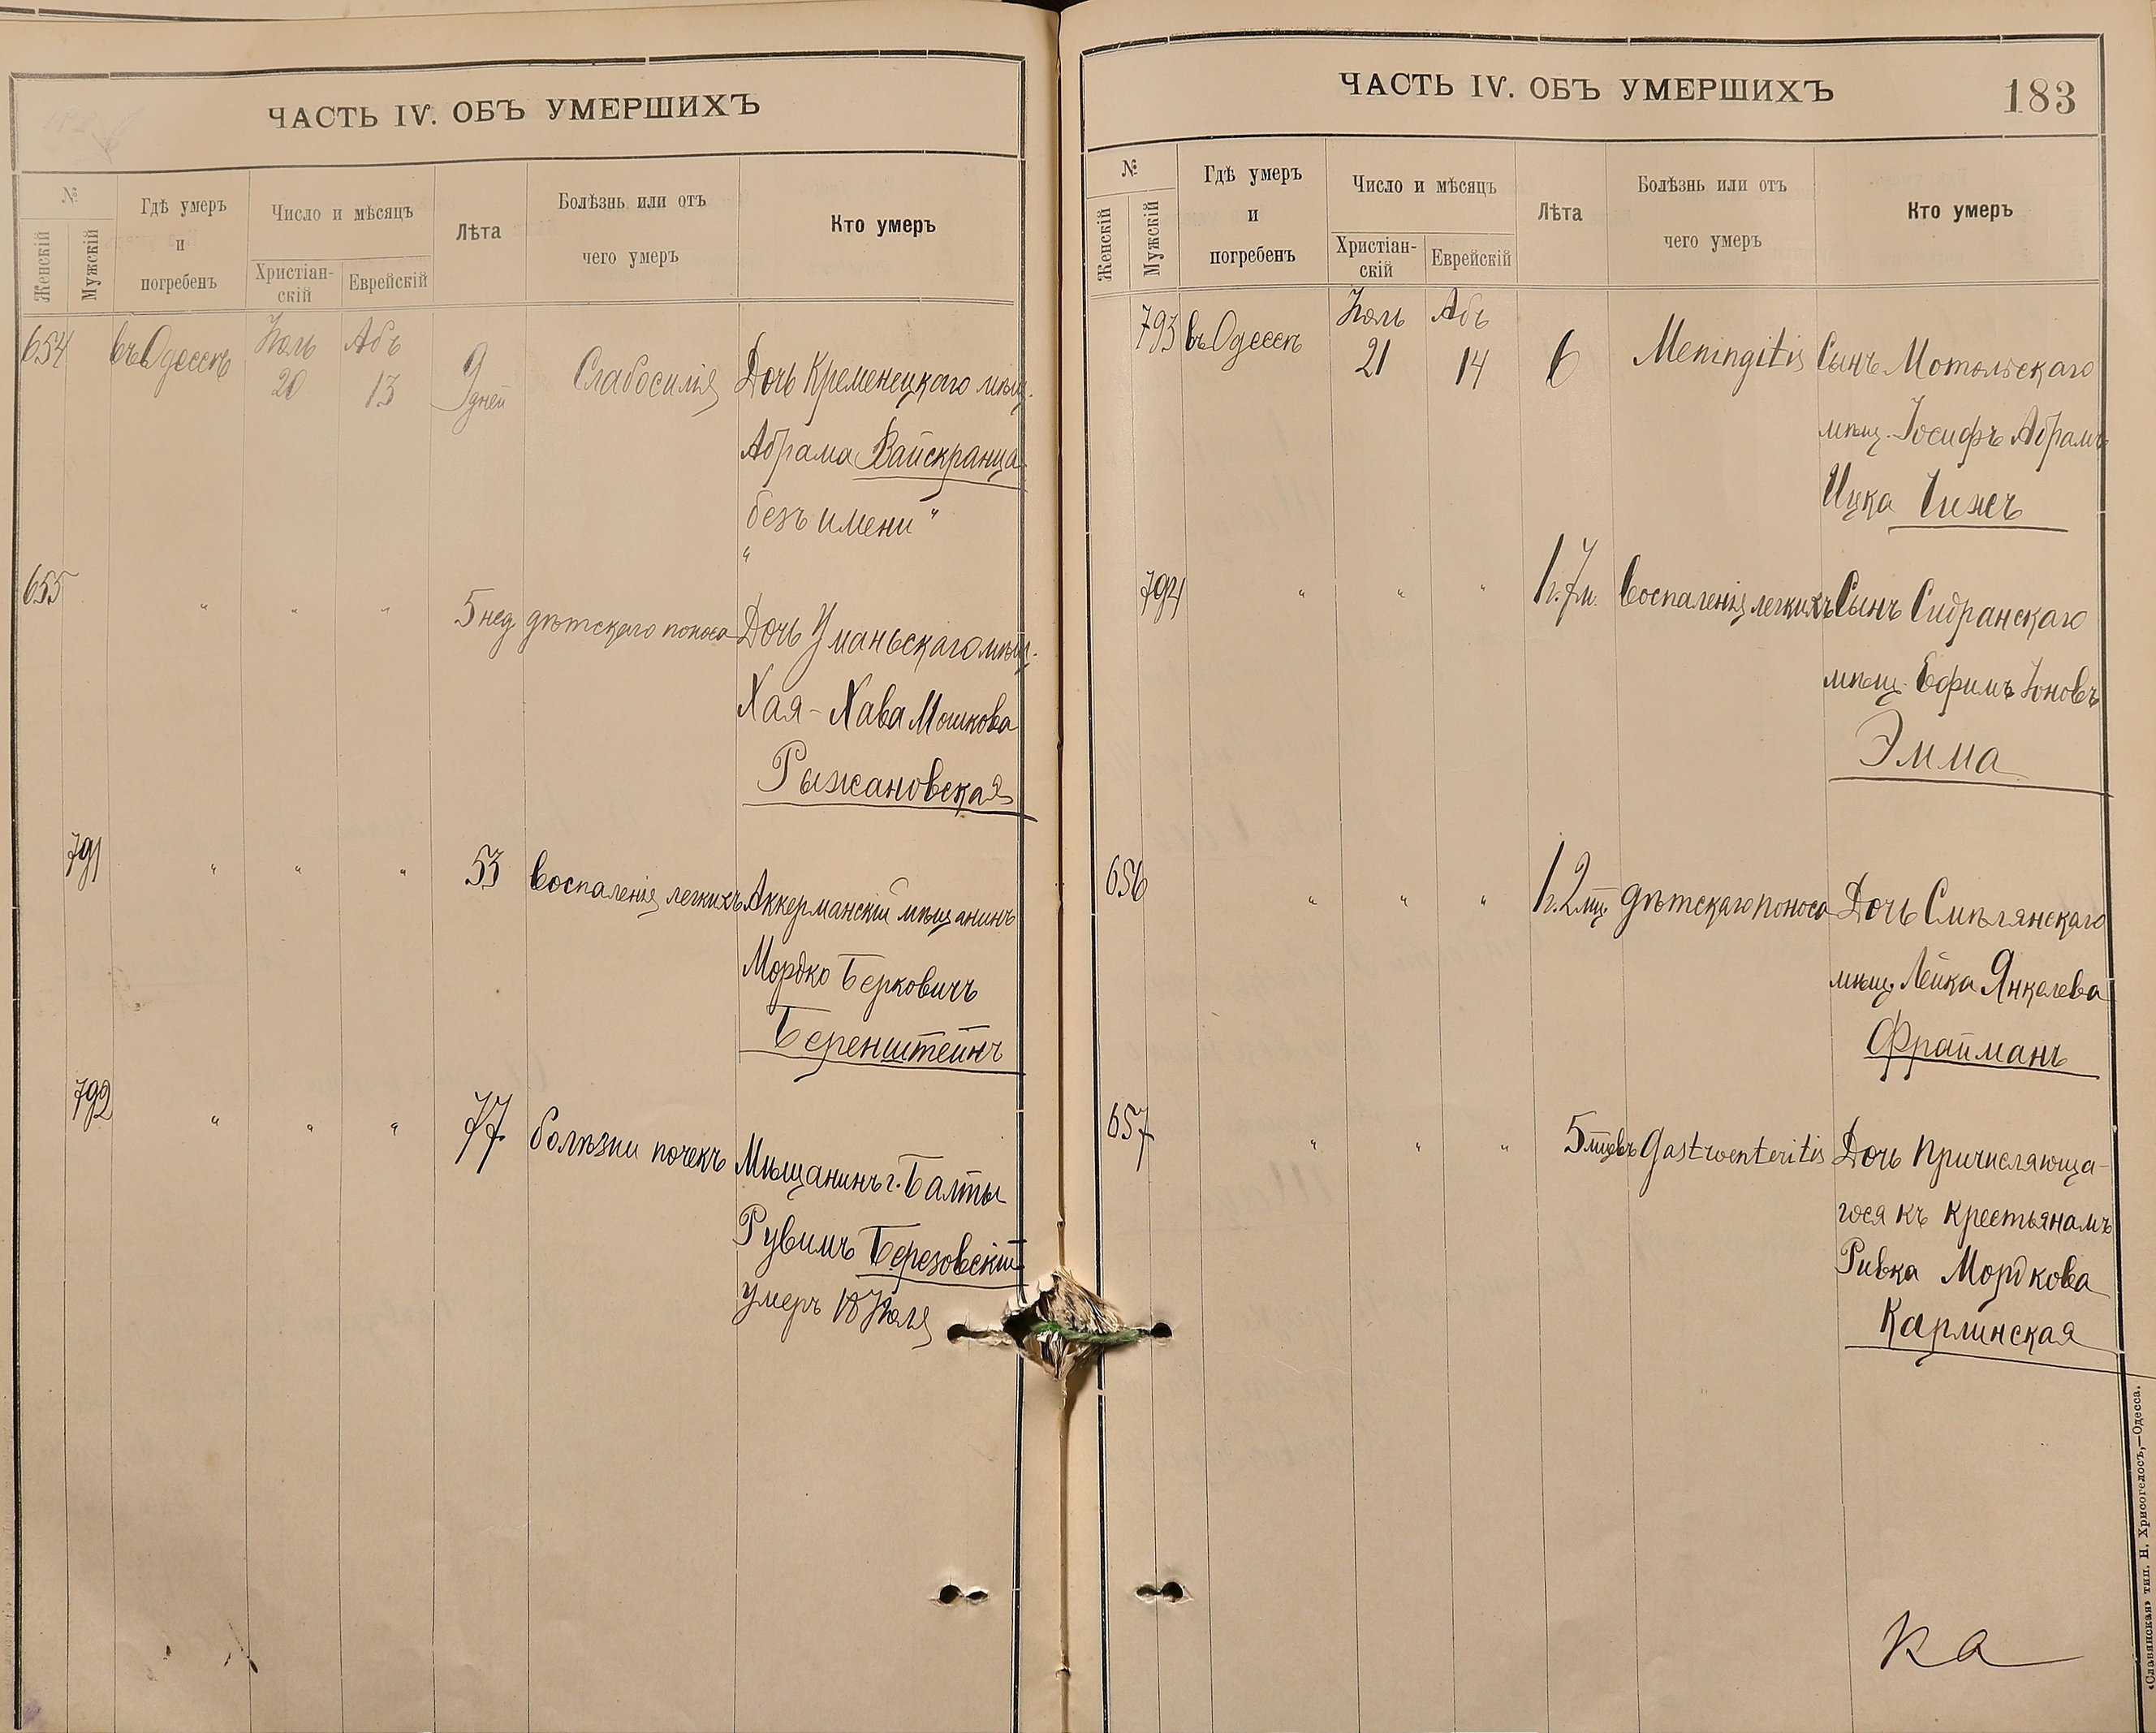 ЧАСТЬ IV. ОБЪ УМЕРШИХЪ
№
Женскій
Мужскій
Гдѣ умеръ
и
погребенъ
Число и мѣсяцъ
Христіан-
скій
Еврейскій
Лѣта
Болѣзнь или отъ
чего умеръ
Кто умеръ
654 въ Одессѣ Іюль 20 Абъ 13 9 дней Слабосилія Дочь Кременецкаго мѣщ.
Абрама Вайскранца
безъ имени "
"
655 " " " 5 нед дѣтскаго поноса Дочь Уманьскаго мѣщ.
Хая-Хава Мошкова
Рыжановская
791 " " " 53 воспаленія легкихъ Аккерманскій мѣщанинъ
Мордко Берковичъ
Беренштейнъ
792 " " " 77 болѣзни почекъ Мѣщанинъ г. Балты
Рувимъ Березовскій
умеръ 18 Іюля
ЧАСТЬ IV. ОБЪ УМЕРШИХЪ
183
№
Женскій
Мужскій
Гдѣ умеръ
и
погребенъ
Число и мѣсяцъ
Христіан-
скій
Еврейскій
Лѣта
Болѣзнь или отъ
чего умеръ
Кто умеръ
793 въ Одессѣ Іюль 21 Абъ 14 6 Meningitis Сынъ Мотольскаго
мѣщ. Іосифъ Абрамъ
Ицка Чижъ
794 " " " 1 г. 7 м. воспаленія легкихъ Сынъ
мѣщ. Ефимъ Іоновъ
Эмма
656 " " " 1 г. 2 мц. дѣтскаго поноса Дочь Смѣлянскаго
мѣщ. Лейка Янкелева
Фрайманъ
657 " " " 5 мцевъ Gastroenteritis Дочь Причисляюща-
гося къ крестьянамъ
Ривка Мордкова
Карлинская
ка
«Славянская» тип. Н. Хрисогелосъ,—Одесса.